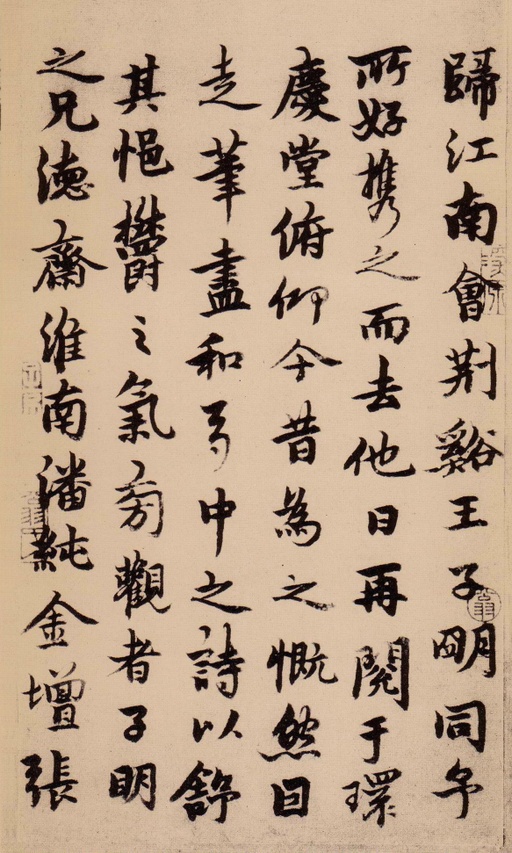 歸江南會荆谿王子明同予
所好攜之而去他日再閱于環
慶堂俯仰今昔為之慨然因
走筆盡和弓中之詩以舒
其悒鬱之氣旁觀者子明
之兄德齋淮南潘純金壇張